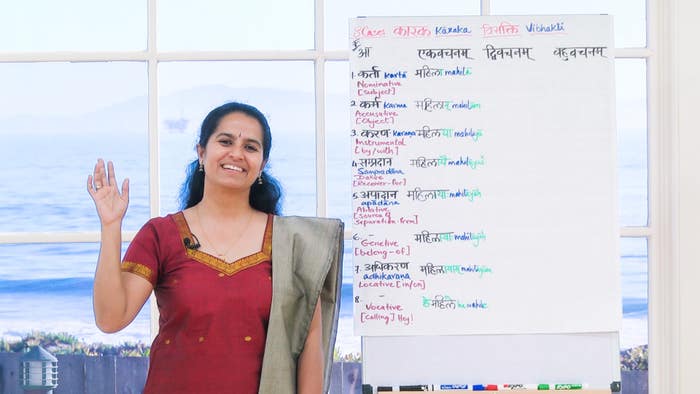 8 Cases कारक Kāraka विभक्ति Vibhakti
आ एकवचनम् द्विवचनम् बहुवचनम्
1. कर्ता kartā महिला mahilā
Nominative
[Subject]
2. कर्म karma महिलाम् mahilām
Accusative
[Object]
3. करण karaṇa महिलया mahilayā
Instrumental
[by/with]
4. सम्प्रदान महिलायै mahilāyai
Sampradāna
Dative
[Receiver-for]
5. अपादान महिलायाः mahilāyāḥ
apādāna
Ablative
[source of
Separation-from]
6. – महिलायाः mahilāyāḥ
Genetive
[belong-of]
7. अधिकरण महिलायाम् mahilāyām
adhikaraṇa
Locative [in/on]
8. – हे महिले he mahile
Vocative
[Calling] Hey!